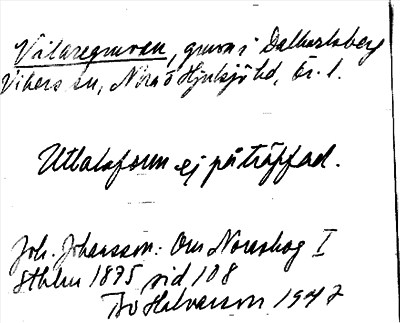 Vilaregruvan, gruva i Dalkarlsberg
Vikers sn, Nora o Hjulsjö hd, Ör. l.
Uttalsform ej påträffad.
Joh. Johansson: Om Noraskog I
Sthlm 1875 sid 108
Bo Halvarson 1947